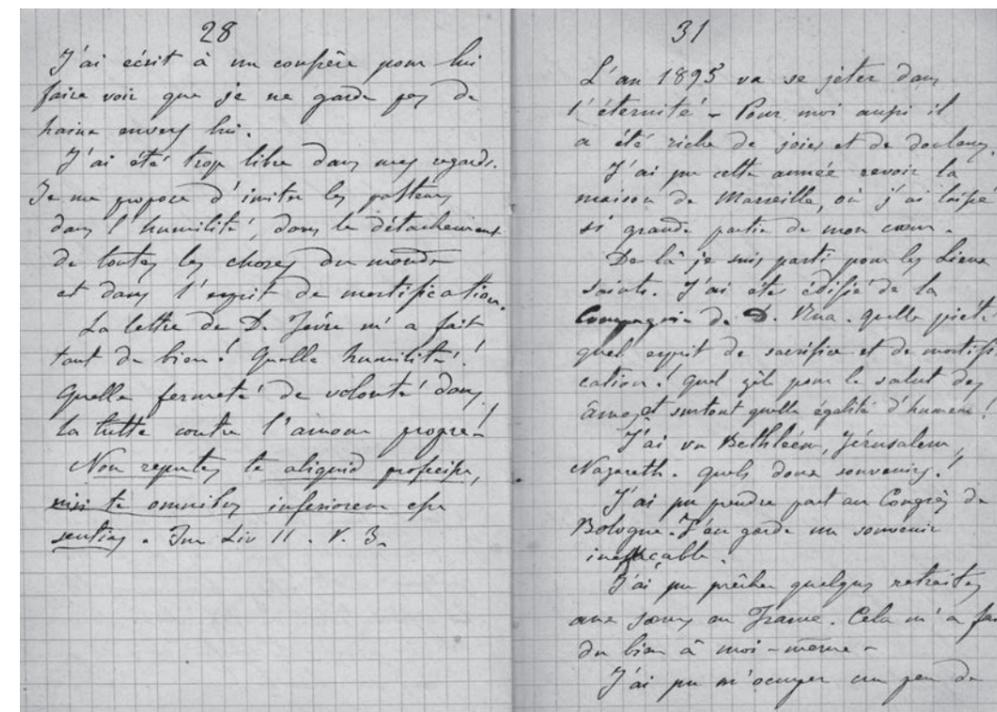 28
J'ai écrit à un confrère pour lui
faire voir que je ne garde pas de
haine envers lui.
J'ai été trop libre dans mes regards.
Je me propose d'imiter les pasteurs
dans l'humilité, dans le détachement
de toutes les choses du monde
et dans l'esprit de mortification.
La lettre de D. m'a fait
tant de bien! Quelle humilité!
Quelle fermeté de volonté dans
la lutte contre l'amour propre!
Non reputes te aliquid profecisse,
nisi te omnibus inferiorem esse
sentias. Im Liv II. V. 3.
31
L'an 1895 va se jeter dans
l'éternité - Pour moi aussi il
a été riche de joies et de douleurs.
J'ai pu cette année revoir la
maison de Marseille, où j'ai laissé
si grande partie de mon cœur.
De là je suis parti pour les Lieux
saints. J'ai été édifié de la
Compagnie de D. Rua. Quelle piété
quel esprit de sacrifice et de mortifi
cation! Quel zèle pour le salut des
âmes et surtout quelle égalité d'humeur!
J'ai vu Bethléem, Jérusalem,
Nazareth. Quels doux souvenirs!
J'ai pu prendre part au Congrès de
Bologne. J'en garde un souvenir
ineffaçable.
J'ai pu prêcher quelques retraites
aux sœurs en France. Cela m'a fa
du bien à moi-même -
J'ai pu m'occuper un peu de